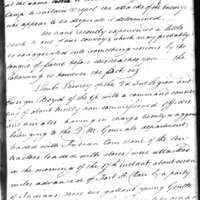 at the same
Camp to sustain & repel the attacks of the enemy
who appear to be desperate & determined.
We have recently experienced a little
such to one of our convoys which may probably
be exaggerated into something serious by the
tongue of fame before this reaches you. the
following is however the fact. viz
Lieut Lowry of the 2d sub Legion and
Ensign Boyd of the 1st with a command consisting
of about ninety non commissioned officers
and privates having in charge twenty waggons
belonging to the Q. M. Generals department
loaded with Indian Corn & one of the Con-
tractors loaded with stores was attack
on the morning of the 17th instant about seven
miles advanced of Fort St Clair by a party
of Indians, those two gallant young Gentle